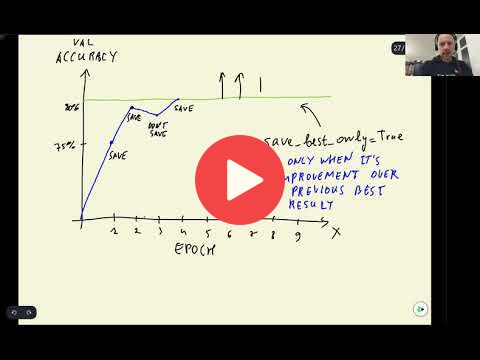 VAL
ACCURACY
27/
80%
SAVE
SAVE
DON'T
SAVE
75%
SAVE
save_best_only=True
ONLY WHEN IT'S
IMPROVEMENT OVER
PREVIOUS BEST
RESULT
1 2 3 4 5 6 7 8 9 X
EPOCH